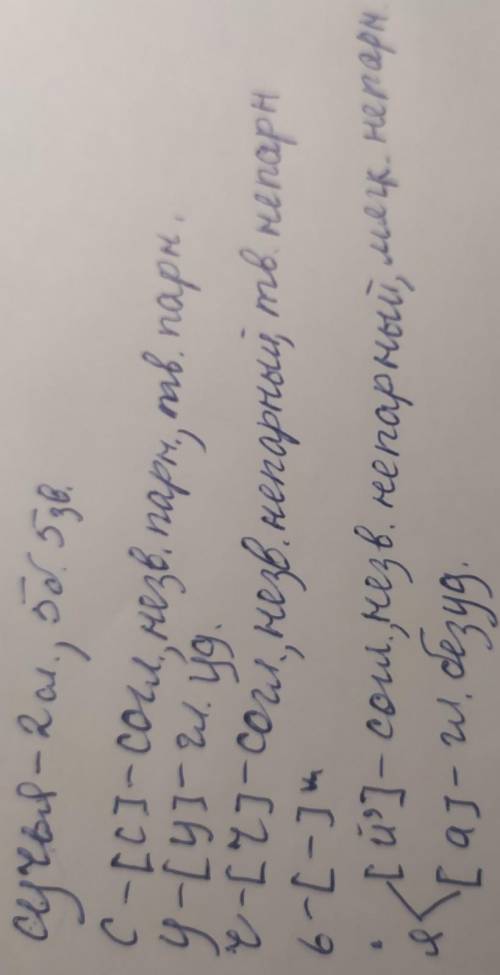 сучья – 2 сл., 5 б. 5 зв.
с – [с] – согл., незв. парн., тв. парн.
у – [у] – гл. уд.
ч – [ч] – согл., незв. непарный, тв. непарн
ь – [–]
[й'] – согл., незв. непарный, мягк. непарн.
я < [а] – гл. безуд.